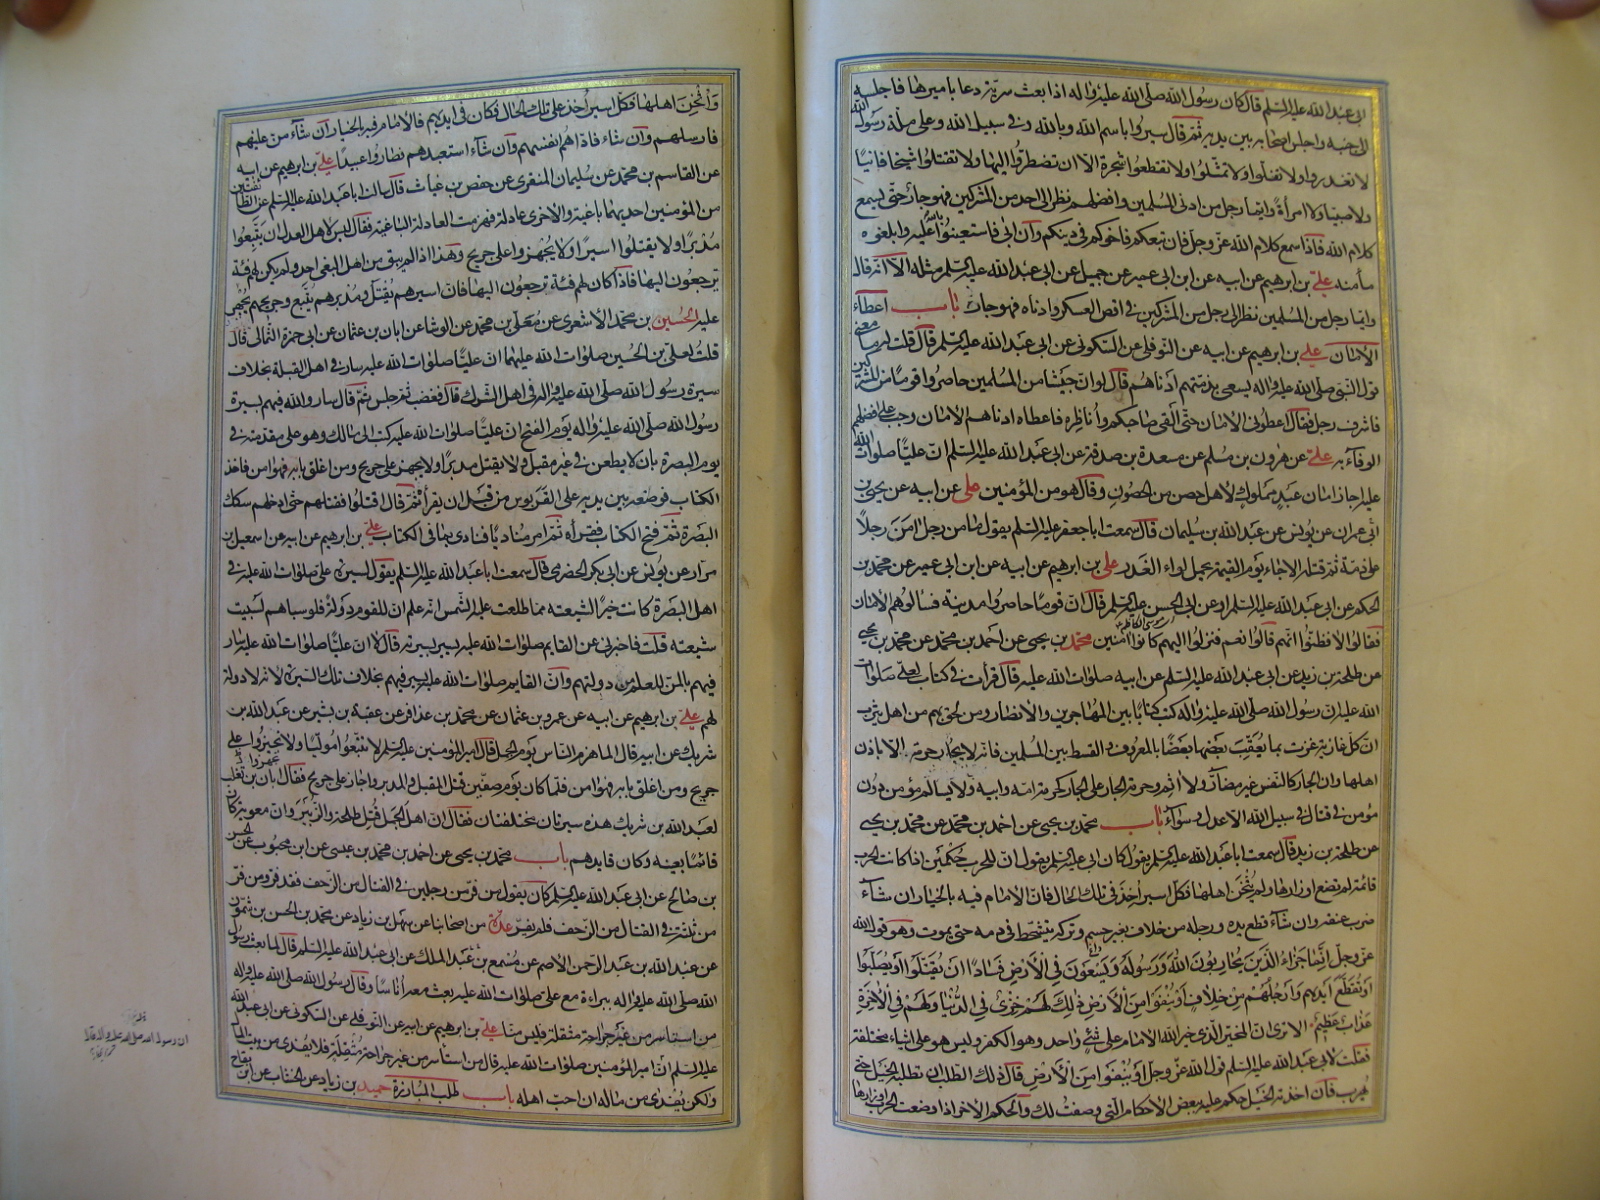 ابى عبد الله عليه السلم قال كان رسول الله صلى الله عليه واله اذا بعث سرية دعا باميرها فاجلسه
الى جنبه واجلس اصحابه بين يديه ثم قال سيروا باسم الله وبالله وفي سبيل الله وعلى ملة رسول الله
لا تغدروا ولا تغلوا ولا تمثلوا ولا تقطعوا شجرة الا ان تضطروا اليها ولا تقتلوا شيخا فانيا
ولا صبيا ولا امرأة وايما رجل من ادنى المسلمين وافضلهم نظر الى احد من المشركين فهو جار حتى يسمع
كلام الله فاذا سمع كلام الله عز وجل فان تبعكم فاخوكم في دينكم وان ابى فاستعينوا بالله عليه وابلغوه
مأمنه علي بن ابرهيم عن ابيه عن ابن ابى عمير عن جميل عن ابى عبد الله عليه السلم مثله الا انه قال
وايما رجل من المسلمين نظر الى رجل من المشركين في اقصى العسكر وادناه فهو جار باب اعطاء
الامان علي بن ابرهيم عن ابيه عن النوفلى عن السكونى عن ابى عبد الله عليه السلم قال قلت له ما معنى
قول النبى صلى الله عليه واله يسعى بذمتهم ادناهم قال لو ان جيشا من المسلمين حاصروا قوما من المشركين
فاشرف رجل فقال اعطونى الامان حتى القى صاحبكم واناظره فاعطاه ادناهم الامان وجب على افضلهم
الوفاء به علي عن هرون بن مسلم عن مسعدة بن صدقة عن ابى عبد الله عليه السلم ان عليا صلوات الله
عليه اجاز امان عبد مملوك لاهل حصن من الحصون وقال هو من المؤمنين علي عن ابيه عن يحيى بن
ابى عمران عن يونس عن عبد الله بن سليمان قال سمعت ابا جعفر عليه السلم يقول ما من رجل امن رجلا
على ذمة ثم قتله الا جاء يوم القيمة يحمل لواء الغدر علي بن ابرهيم عن ابيه عن ابن ابى عمير عن محمد بن
الحكم عن ابى عبد الله عليه السلم او عن ابى الحسن عليه السلم قال ان قوما حاصروا مدينة فسالوهم الامان
فقالوا لا فظنوا انهم قالوا نعم فنزلوا اليهم كانوا امنين محمد بن يحيى عن احمد بن محمد عن محمد بن يحيى
عن طلحة بن زيد عن ابى عبد الله عليه السلم عن ابيه صلوات الله عليه قال قرأت في كتاب لعلى صلوات
الله عليه ان رسول الله صلى الله عليه واله كتب كتابا بين المهاجرين والانصار ومن لحق بهم من اهل يثرب
ان كل غازية غزت بما يعقب بعضها بعضا بالمعروف والقسط بين المسلمين فانه لا يجار حرمة الا باذن
اهلها وان الجار كالنفس غير مضار ولا اثم وحرمة الجار على الجار كحرمة امه وابيه ولا يسالم مؤمن دون
مؤمن في قتال في سبيل الله الا على عدل وسواء باب محمد بن يحيى عن احمد بن محمد عن محمد بن يحيى
عن طلحة بن زيد قال سمعت ابا عبد الله عليه السلم يقول كان ابى عليه السلم يقول ان للحرب حكمين اذا كانت الحرب
قائمة لم تضع اوزارها ولم يثخن اهلها فكل اسير اخذ في تلك الحال فان الامام فيه بالخيار ان شاء
ضرب عنقه وان شاء قطع يده ورجله من خلاف بغير حسم وتركه يتشحط في دمه حتى يموت وهو قول الله
عز وجل انما جزاء الذين يحاربون الله ورسوله ويسعون في الارض فسادا ان يقتلوا او يصلبوا
او تقطع ايديهم وارجلهم من خلاف او ينفوا من الارض ذلك لهم خزى في الدنيا ولهم في الاخرة
عذاب عظيم الا ترى ان المخير الذى خير الله الامام على شئ واحد وهو الكفر وليس هو على اشياء مختلفة
فقلت لابى عبد الله عليه السلم قول الله عز وجل او ينفوا من الارض قال ذلك الطلب ان تطلبه الخيل حتى
يهرب فان اخذته الخيل حكم عليه ببعض الاحكام التى وصفت لك والحكم الاخر اذا وضعت الحرب اوزارها
واثخن اهلها فكل اسير اخذ على تلك الحال فكان في ايديهم فالامام فيه بالخيار ان شاء من عليهم
فارسلهم وان شاء فاداهم انفسهم وان شاء استعبدهم فصاروا عبيدا علي بن ابرهيم عن ابيه
عن القاسم بن محمد عن سليمان المنقرى عن حفص بن غياث قال سالت ابا عبد الله عليه السلم عن الطائفتين
من المؤمنين احديهما باغية والاخرى عادلة فهزمت العادلة الباغية فقال ليس لاهل العدل ان يتبعوا
مدبرا ولا يقتلوا اسيرا ولا يجهزوا على جريح وهذا اذا لم يبق من اهل البغى احد ولم يكن لهم فئة
يرجعون اليها فاذا كان لهم فئة يرجعون اليها فان اسيرهم يقتل ومدبرهم يتبع وجريحهم يجهز
عليه الحسين بن محمد الاشعرى عن معلى بن محمد عن الوشا عن ابان بن عثمان عن ابى حمزة الثمالى قال
قلت لعلى بن الحسين صلوات الله عليهما ان عليا صلوات الله عليه سار في اهل القبلة بخلاف
سيرة رسول الله صلى الله عليه واله في اهل الشرك قال فغضب ثم جلس ثم قال سار والله فيهم بسيرة
رسول الله صلى الله عليه واله يوم الفتح ان عليا صلوات الله عليه كتب الى مالك وهو على مقدمته في
يوم البصرة بان لا يطعن في غير مقبل ولا يقتل مدبرا ولا يجهز على جريح ومن اغلق بابه فهو امن فاخذ
الكتاب فوضعه بين يديه على القربوس من قبل ان يقرأه ثم قال اقتلوا فقتلهم حتى ادخلهم سكك
البصرة ثم فتح الكتاب فقرأه ثم امر مناديا فنادى بما في الكتاب علي بن ابرهيم عن ابيه عن اسمعيل بن
مرار عن يونس عن ابى بكر الحضرمى قال سمعت ابا عبد الله عليه السلم يقول لسيرة على صلوات الله عليه في
اهل البصرة كانت خيرا لشيعته مما طلعت عليه الشمس انه علم ان للقوم دولة فلو سباهم لسبيت
شيعته قلت فاخبرنى عن القايم صلوات الله عليه يسير بسيرته قال لا ان عليا صلوات الله عليه سار
فيهم بالمن للعلم من دولتهم وان القايم صلوات الله عليه يسير فيهم بخلاف تلك السيرة لانه لا دولة
لهم علي بن ابرهيم عن ابيه عن عمرو بن عثمان عن محمد بن عذافر عن عقبة بن بشير عن عبد الله بن
شريك عن ابيه قال لما هزم الناس يوم الجمل قال امير المؤمنين عليه السلم لا تتبعوا موليا ولا تجيزوا على
جريح ومن اغلق بابه فهو امن فلما كان يوم صفين قتل المقبل والمدبر واجاز على جريح فقال ابان بن تغلب
لعبد الله بن شريك هذه سيرتان مختلفتان فقال ان اهل الجمل قتل طلحة والزبير وان معوية كان
قائما بعينه وكان قايدهم باب محمد بن يحيى عن احمد بن محمد بن عيسى عن ابن محبوب عن الحسن
بن صالح عن ابى عبد الله عليه السلم كان يقول من فر من رجلين في القتال من الزحف فقد فر ومن فر
من ثلثة في القتال من الزحف فلم يفر عدة من اصحابنا عن سهل بن زياد عن محمد بن الحسن بن شمون
عن عبد الله بن عبد الرحمن الاصم عن مسمع بن عبد الملك عن ابى عبد الله عليه السلم قال لما بعث رسول
الله صلى الله عليه واله ببراءة مع على صلوات الله عليه بعث معه اناسا وقال رسول الله صلى الله عليه واله
من استاسر من غير جراحة مثقلة فليس منا علي بن ابرهيم عن ابيه عن النوفلى عن السكونى عن ابى عبد الله
عليه السلم ان امير المؤمنين صلوات الله عليه قال من استاسر من غير جراحة مثقلة فلا يفدى من بيت المال
ولكن يفدى من ماله ان احب اهله باب طلب المبارزة حميد بن زياد عن الخشاب عن ابن بقاح
ان رسول الله صلى الله عليه واله قال